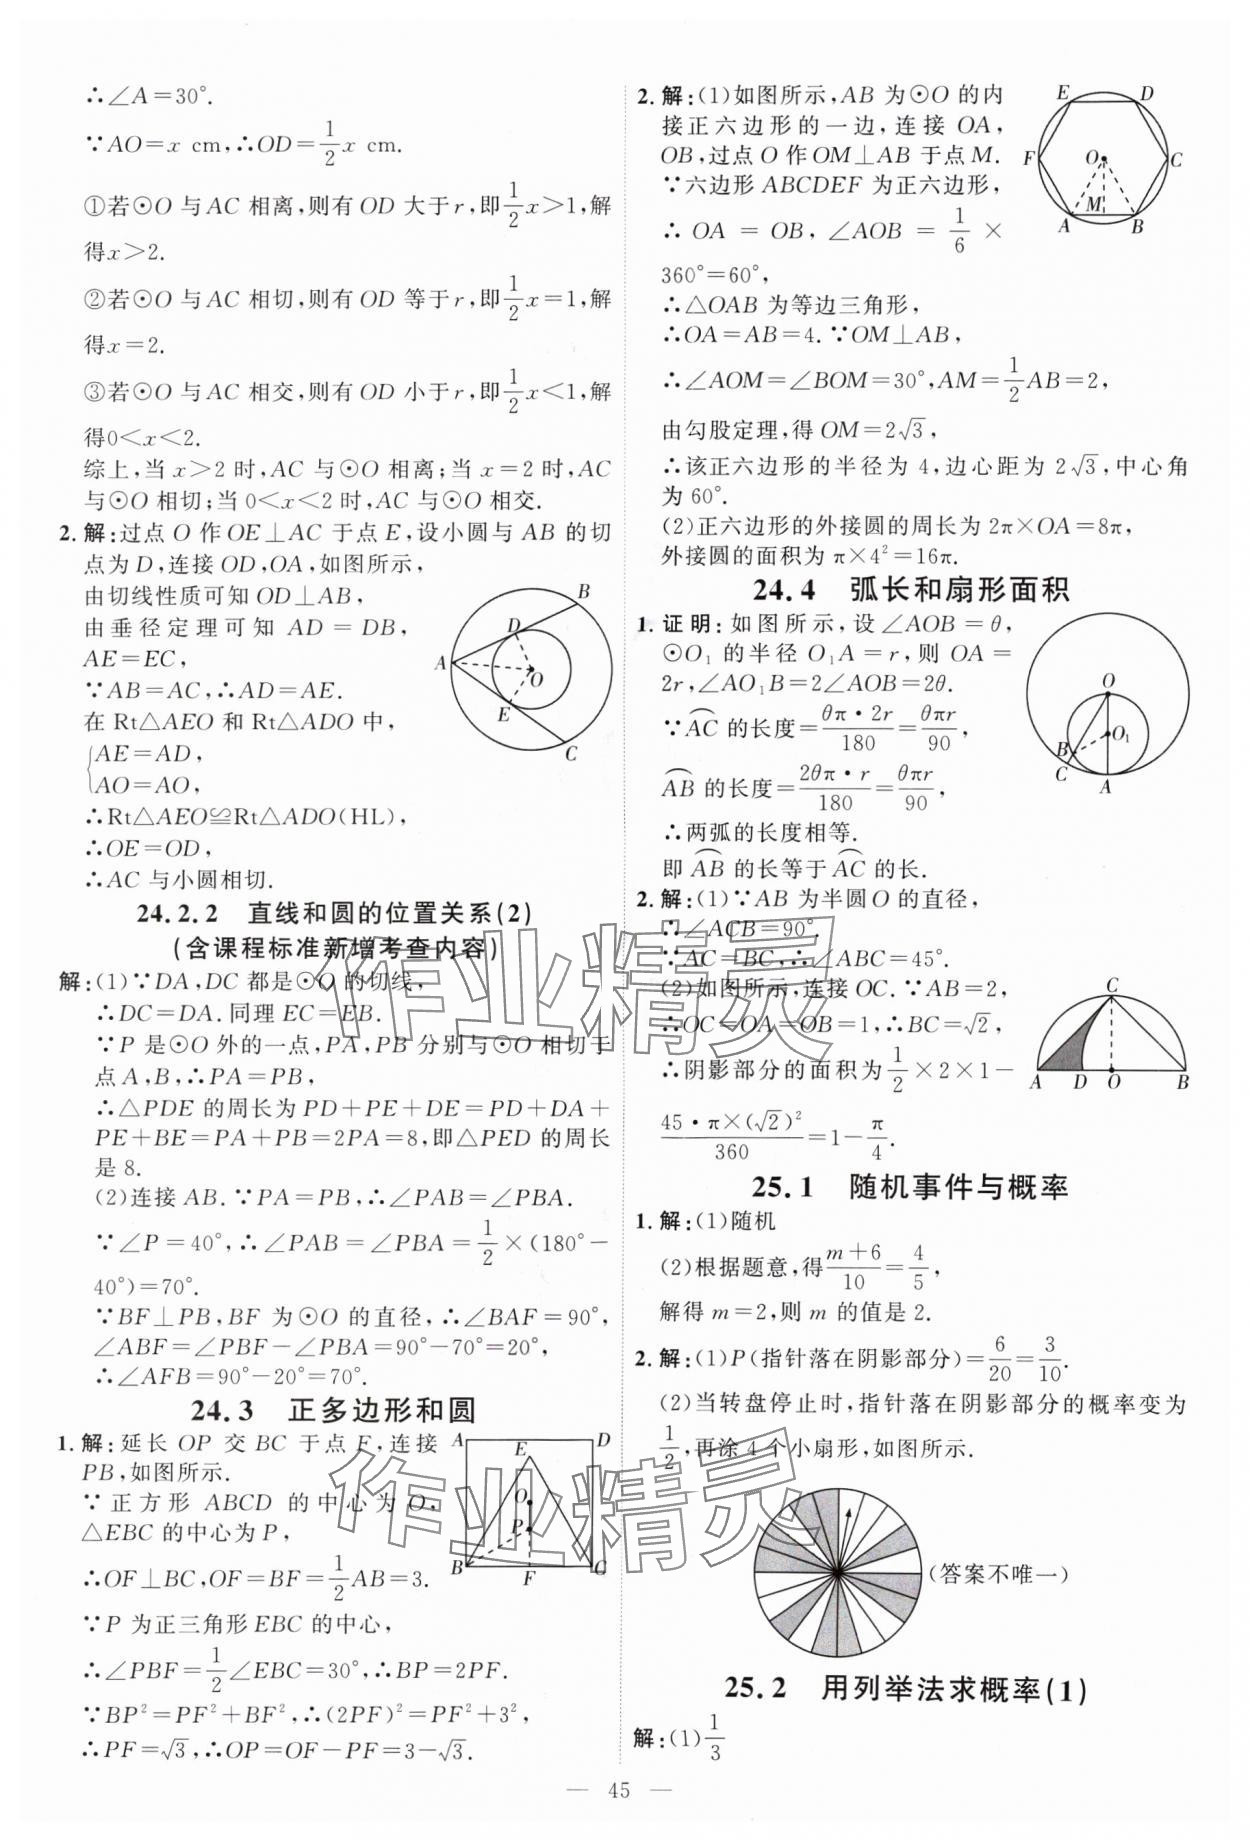 ∴∠A=30°.
∵AO=x cm,∴OD=1/2x cm.
①若⊙O与AC相离,则有OD大于r,即1/2x>1,解
得x>2.
②若⊙O与AC相切,则有OD等于r,即1/2x=1,解
得x=2.
③若⊙O与AC相交,则有OD小于r,即1/2x<1,解
得0<x<2.
综上,当x>2时,AC与⊙O相离;当x=2时,AC
与⊙O相切;当0<x<2时,AC与⊙O相交.
2.解:过点O作OE⊥AC于点E,设小圆与AB的切
点为D,连接OD,OA,如图所示,
由切线性质可知OD⊥AB,
由垂径定理可知AD=DB,
AE=EC,
∵AB=AC,∴AD=AE.
在Rt△AEO和Rt△ADO中,
{AE=AD,
AO=AO,
∴Rt△AEO≌Rt△ADO(HL),
∴OE=OD,
∴AC与小圆相切.
B
D
A
O
E
C
24.2.2 直线和圆的位置关系(2)
(含课程标准新增考查内容)
解:(1)∵DA,DC都是⊙O的切线,
∴DC=DA.同理EC=EB.
∵P是⊙O外的一点,PA,PB分别与⊙O相切于
点A,B,∴PA=PB,
∴△PDE的周长为PD+PE+DE=PD+DA+
PE+BE=PA+PB=2PA=8,即△PED的周长
是8.
(2)连接AB.∵PA=PB,∴∠PAB=∠PBA.
∵∠P=40°,∴∠PAB=∠PBA=1/2×(180°-
40°)=70°.
∵BF⊥PB,BF为⊙O的直径,∴∠BAF=90°,
∠ABF=∠PBF-∠PBA=90°-70°=20°,
∴∠AFB=90°-20°=70°.
24.3 正多边形和圆
1.解:延长OP交BC于点F,连接
PB,如图所示.
∵正方形ABCD的中心为O,
△EBC的中心为P,
∴OF⊥BC,OF=BF=1/2AB=3.
∵P为正三角形EBC的中心,
∴∠PBF=1/2∠EBC=30°,∴BP=2PF.
∵BP²=PF²+BF²,∴(2PF)²=PF²+3²,
∴PF=√3,∴OP=OF-PF=3-√3.
A
D
E
O
P
B
F
C
2.解:(1)如图所示,AB为⊙O的内
接正六边形的一边,连接OA,
OB,过点O作OM⊥AB于点M.
∵六边形ABCDEF为正六边形,
∴OA=OB,∠AOB=1/6×
360°=60°,
∴△OAB为等边三角形,
∴OA=AB=4.∵OM⊥AB,
∴∠AOM=∠BOM=30°,AM=1/2AB=2,
由勾股定理,得OM=2√3,
∴该正六边形的半径为4,边心距为2√3,中心角
为60°.
(2)正六边形的外接圆的周长为2π×OA=8π,
外接圆的面积为π×4²=16π.
E
D
F
O
C
M
A
B
24.4 弧长和扇形面积
1.证明:如图所示,设∠AOB=θ,
⊙O₁的半径O₁A=r,则OA=
2r,∠AO₁B=2∠AOB=2θ.
∵⌒AC的长度=θπ·2r/180=θπr/90,
⌒AB的长度=2θπ·r/180=θπr/90,
∴两弧的长度相等.
即⌒AB的长等于⌒AC的长.
O
B
O₁
C
A
2.解:(1)∵AB为半圆O的直径,
∴∠ACB=90°.
∵AC=BC,∴∠ABC=45°.
(2)如图所示,连接OC.∵AB=2,
∴OC=OA=OB=1,∴BC=√2,
∴阴影部分的面积为1/2×2×1-
45·π×(√2)²/360=1-π/4.
C
A
D
O
B
25.1 随机事件与概率
1.解:(1)随机
(2)根据题意,得m+6/10=4/5,
解得m=2,则m的值是2.
2.解:(1)P(指针落在阴影部分)=6/20=3/10.
(2)当转盘停止时,指针落在阴影部分的概率变为
1/2,再涂4个小扇形,如图所示.
(答案不唯一)
25.2 用列举法求概率(1)
解:(1)1/3
作业精灵
作业精灵
— 45 —